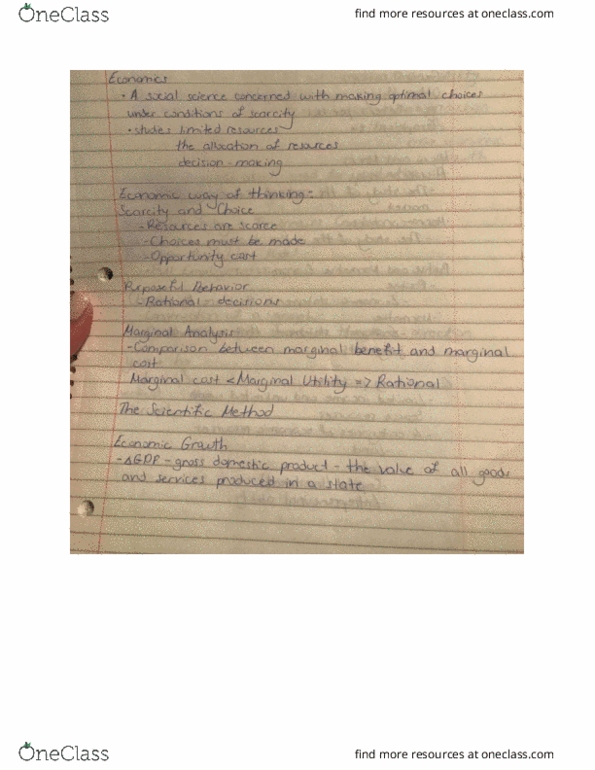 OneClass
find more resources at oneclass.com
Economics
• A social science concerned with making optimal choices
under conditions of scarcity
• studies limited resources
the allocation of resources
decision-making
Economic way of thinking:
Scarcity and Choice
- Resources are scarce
- Choices must be made
- Opportunity cost
Purposeful Behavior
- Rational decisions
Marginal Analysis
- Comparison between marginal benefit and marginal
cost
Marginal cost < Marginal Utility => Rational
The Scientific Method
Economic Growth
- ΔGDP - gross domestic product - the value of all goods
and services produced in a state
OneClass
find more resources at oneclass.com